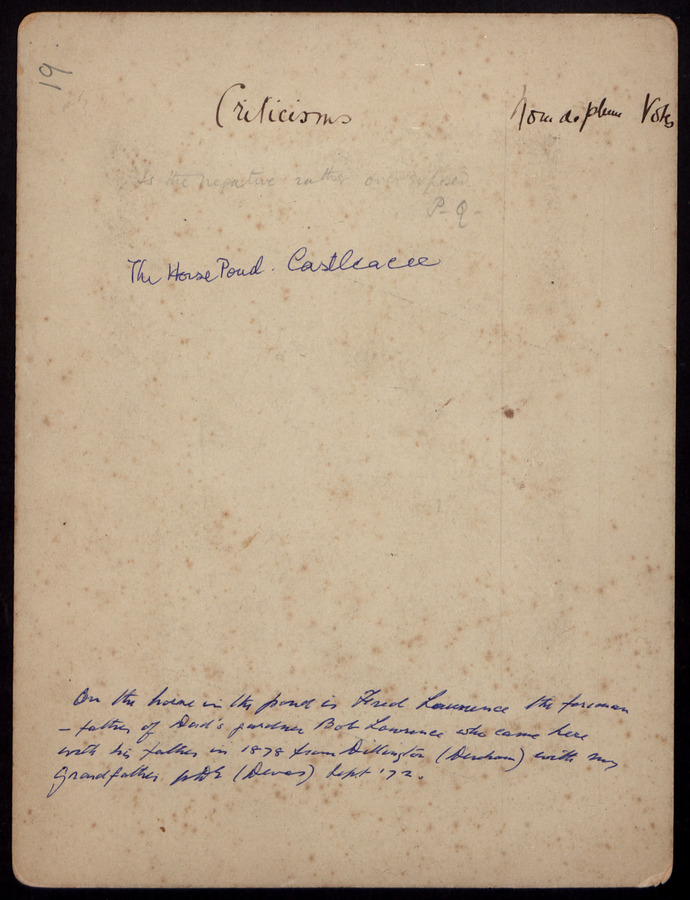 19
Criticisms Nom de plume Votes
Is the negative rather over exposed
P-Q-
The Horse Pond. Castleacre
On the horse in the pond is Fred Lawrence the foreman
- father of Dad's gardner Bob Lawrence who came here
with his father in 1878 from Dillington (Dereham) with my
Grandfather (Dewas) Sept '72.